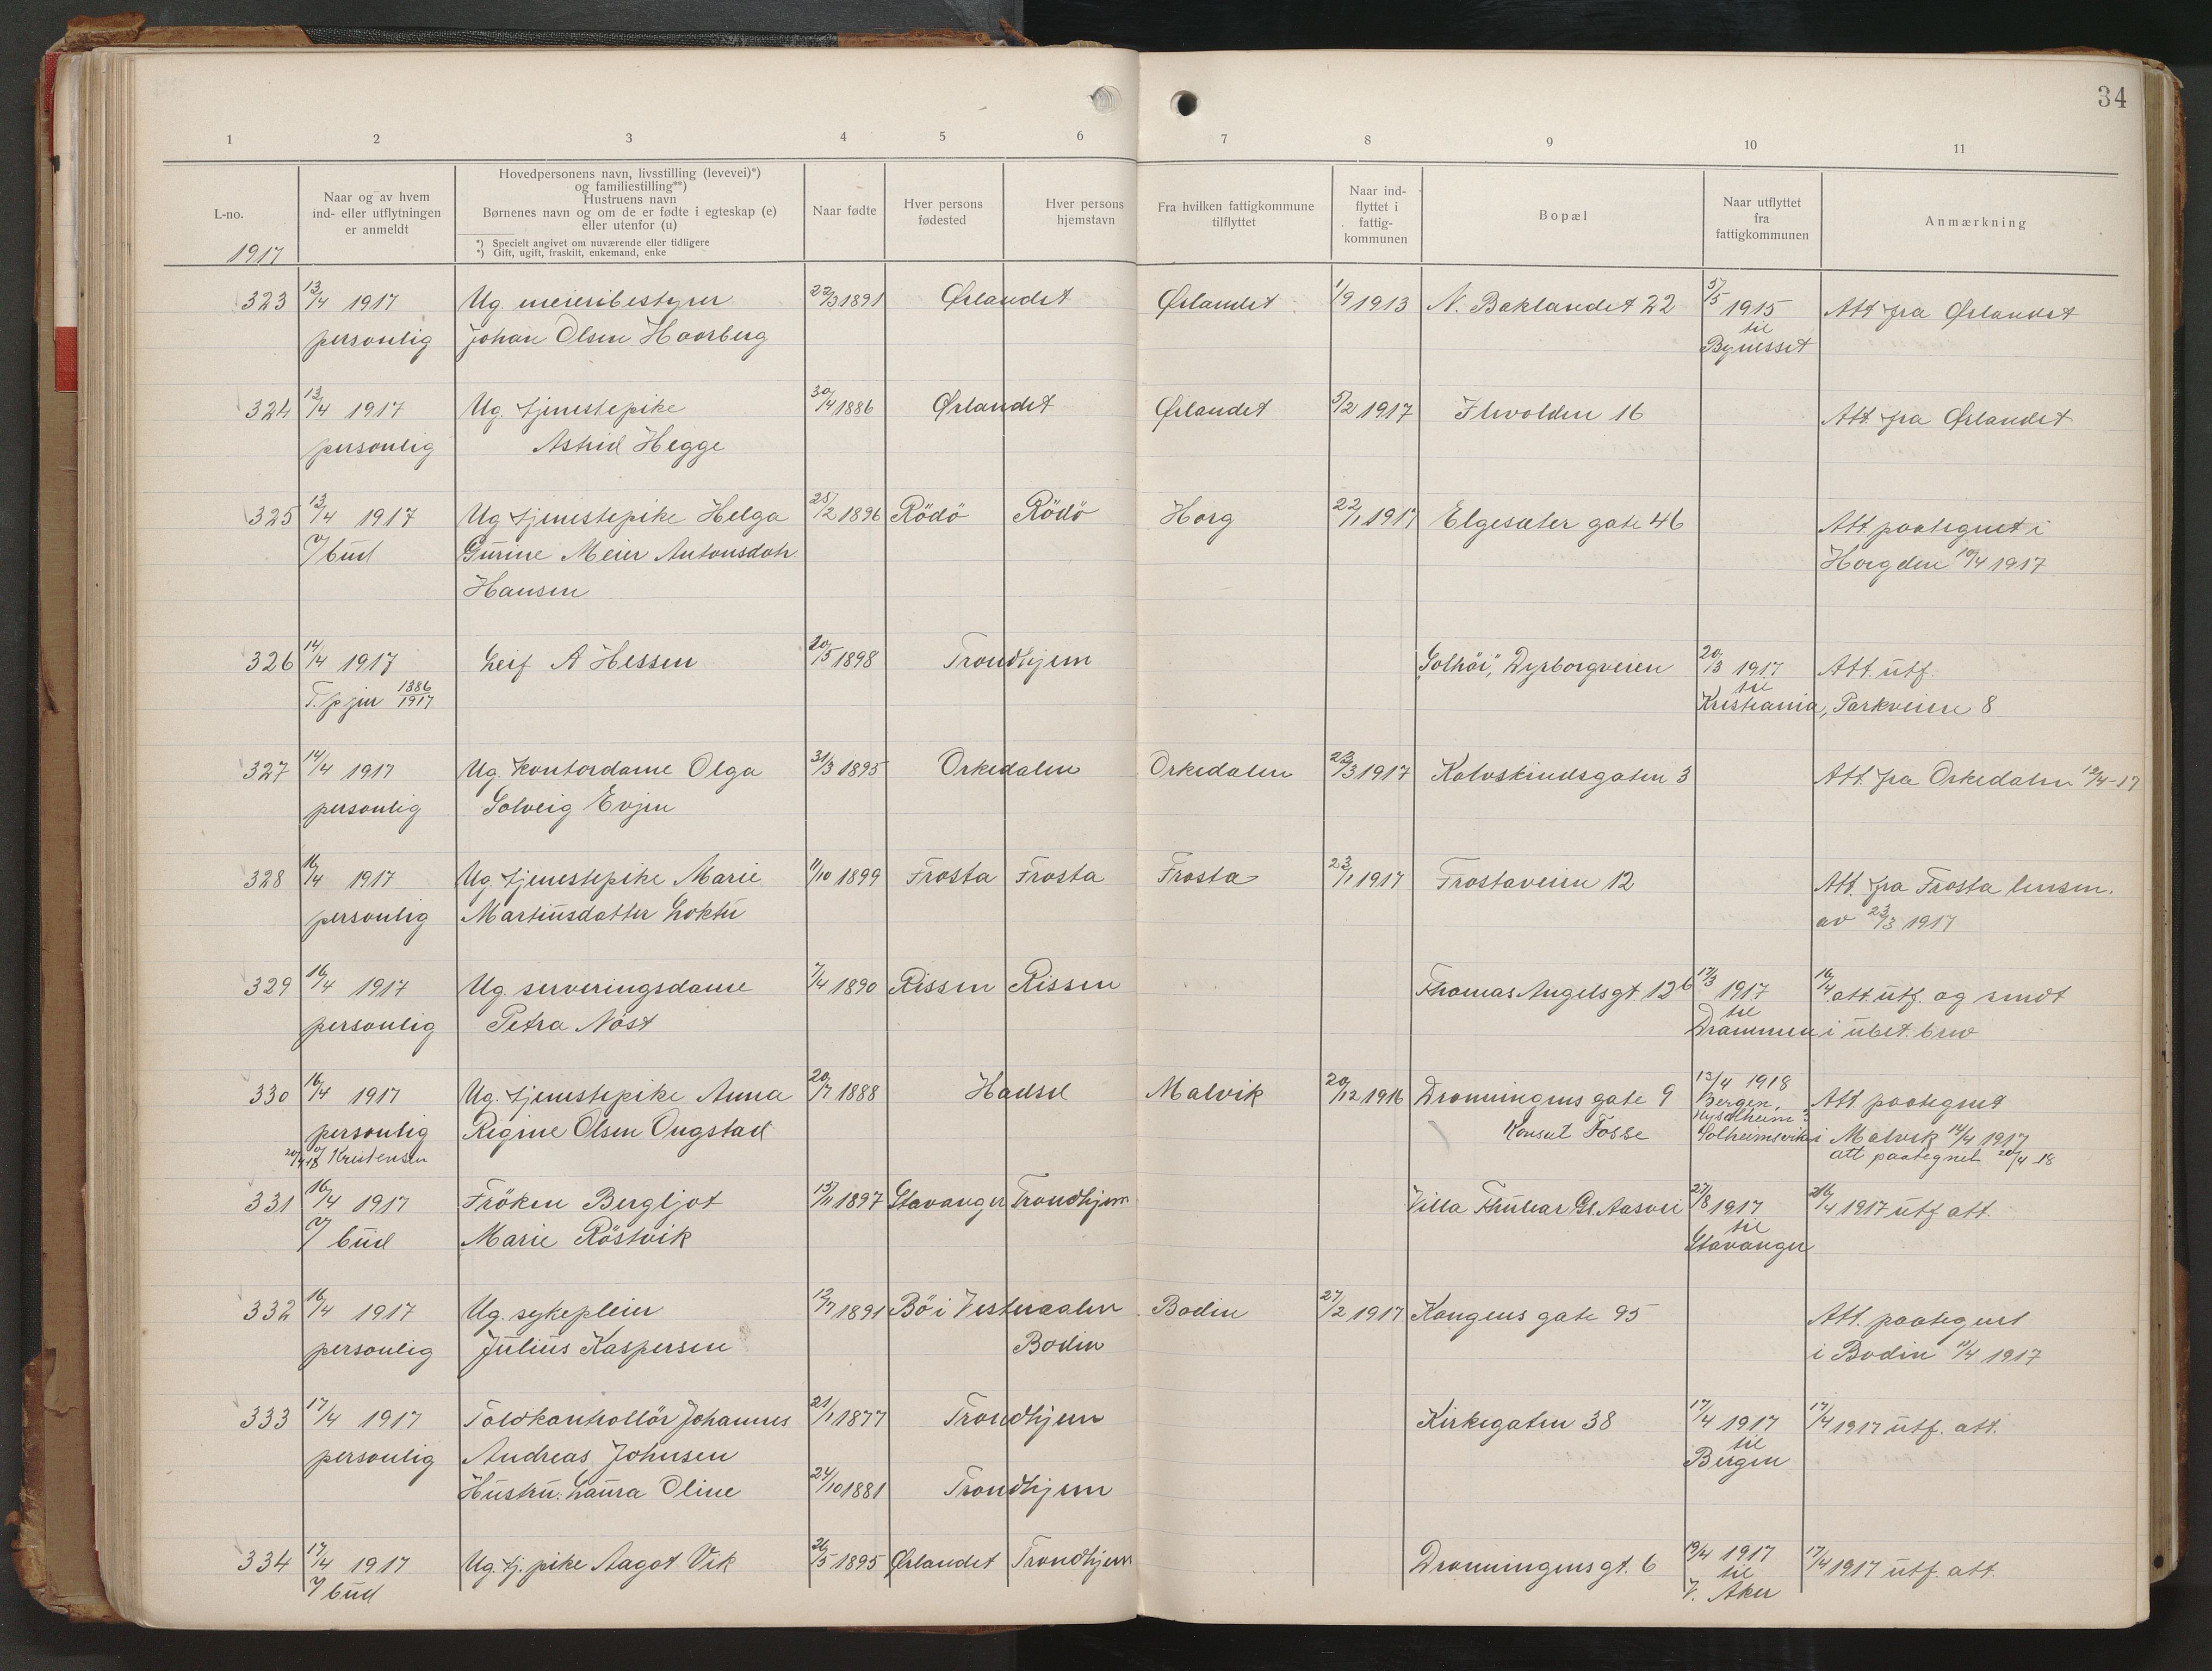 34
1 2 3 4 5 6 7 8 9 10 11
L-no.
1917
Naar og av hvem
ind- eller utflytningen
er anmeldt
Hovedpersonens navn, livsstilling (levevei)*)
og familiestilling**)
Hustruens navn
Børnenes navn og om de er fødte i egteskap (e)
eller utenfor (u)
*) Specielt angivet om nuværende eller tidligere
*) Gift, ugift, fraskilt, enkemand, enke
Naar fødte
Hver persons
fødested
Hver persons
hjemstavn
Fra hvilken fattigkommune
tilflyttet
Naar ind-
flyttet i
fattig-
kommunen
Bopæl
Naar utflyttet
fra
fattigkommunen
Anmærkning
323 13/4 1917 Ug. meieribestyrer 22/3 1891 Ørlandet Ørlandet 1/9 1913 N. Baklandet 22 5/5 1915 Att fra Ørlandet
personlig Johan Olsen Hoorberg til
Bynesset
324 13/4 1917 Ug. tjenestepike 30/4 1886 Ørlandet Ørlandet 5/2 1917 Ilevolden 16 Att. fra Ørlandet
personlig Astrid Hegge
325 13/4 1917 Ug tjenestepike Helga 25/2 1896 Rödö Rödö Horg 22/1 1917 Elgesæter gate 46 Att paategnet i
v/ bud Gurine Meier Antonsdatr. Horg den 10/4 1917
Hansen
326 14/4 1917 Leif A Hessen 20/5 1898 Trondhjem "Solhöi", Dyrborgveien 20/3 1917 Att. utf.
T. p jnr 1386/1917 til
Kristiania, Parkveien 8
327 14/4 1917 Ug. kontordame Olga 31/3 1895 Orkedalen Orkedalen 22/3 1917 Kalvskindsgaten 3 Att. fra Orkedalen 12/4-17
personlig Solveig Evjen
328 16/4 1917 Ug. tjenestepike Marie 11/10 1899 Frosta Frosta Frosta 23/1 1917 Frostaveien 12 Att. fra Frosta lensm.
personlig Martinsdatter Loktu av 23/3 1917
329 16/4 1917 Ug. serveringsdame 7/4 1890 Rissen Rissen Thomas Angelsgt. 12b 17/3 1917 16/4 att. utf. og sendt
personlig Petra Nöst til
Drammen i ubet. brev
330 16/4 1917 Ug. tjenestepike Anna 20/7 1888 Hadsel Malvik 20/12 1916 Dronningens gate 9 13/4 1918
Bergen, Att paategnet
personlig Regine Olsen Ongstad Konsul Fosse
Solheimsvik i Malvik 14/4 1917
20/4 18 v/ Kristensen att paategnet 20/4-18
331 16/4 1917 Fröken Bergljot 13/11 1897 Stavanger Trondhjem Villa Gl. Aasvei 27/8 1917 26/4 1917 utf att.
v/ bud Marie Röstvik til
Stavanger
332 16/4 1917 Ug. sykepleier 12/7 1891 Bö i Vesteraalen Bodin 27/2 1917 Kongens gate 95 Att. paategnet
personlig Julius Kaspersen Bodin i Bodin 11/4 1917
333 17/4 1917 Toldkontrollör Johannes 21/1 1877 Trondhjem Kirkegaten 38 17/4 1917 17/4 1917 utf. att.
personlig Andreas Johnsen til
Bergen
Hustru: Laura Oline 24/10 1881 Trondhjem
334 17/4 1917 Ug. tj. pike Aagot Vik 26/5 1895 Ørlandet Trondhjem Dronningensgt. 6 19/4 1917 17/4 1917 utf. att.
v/ bud til
V. Aker